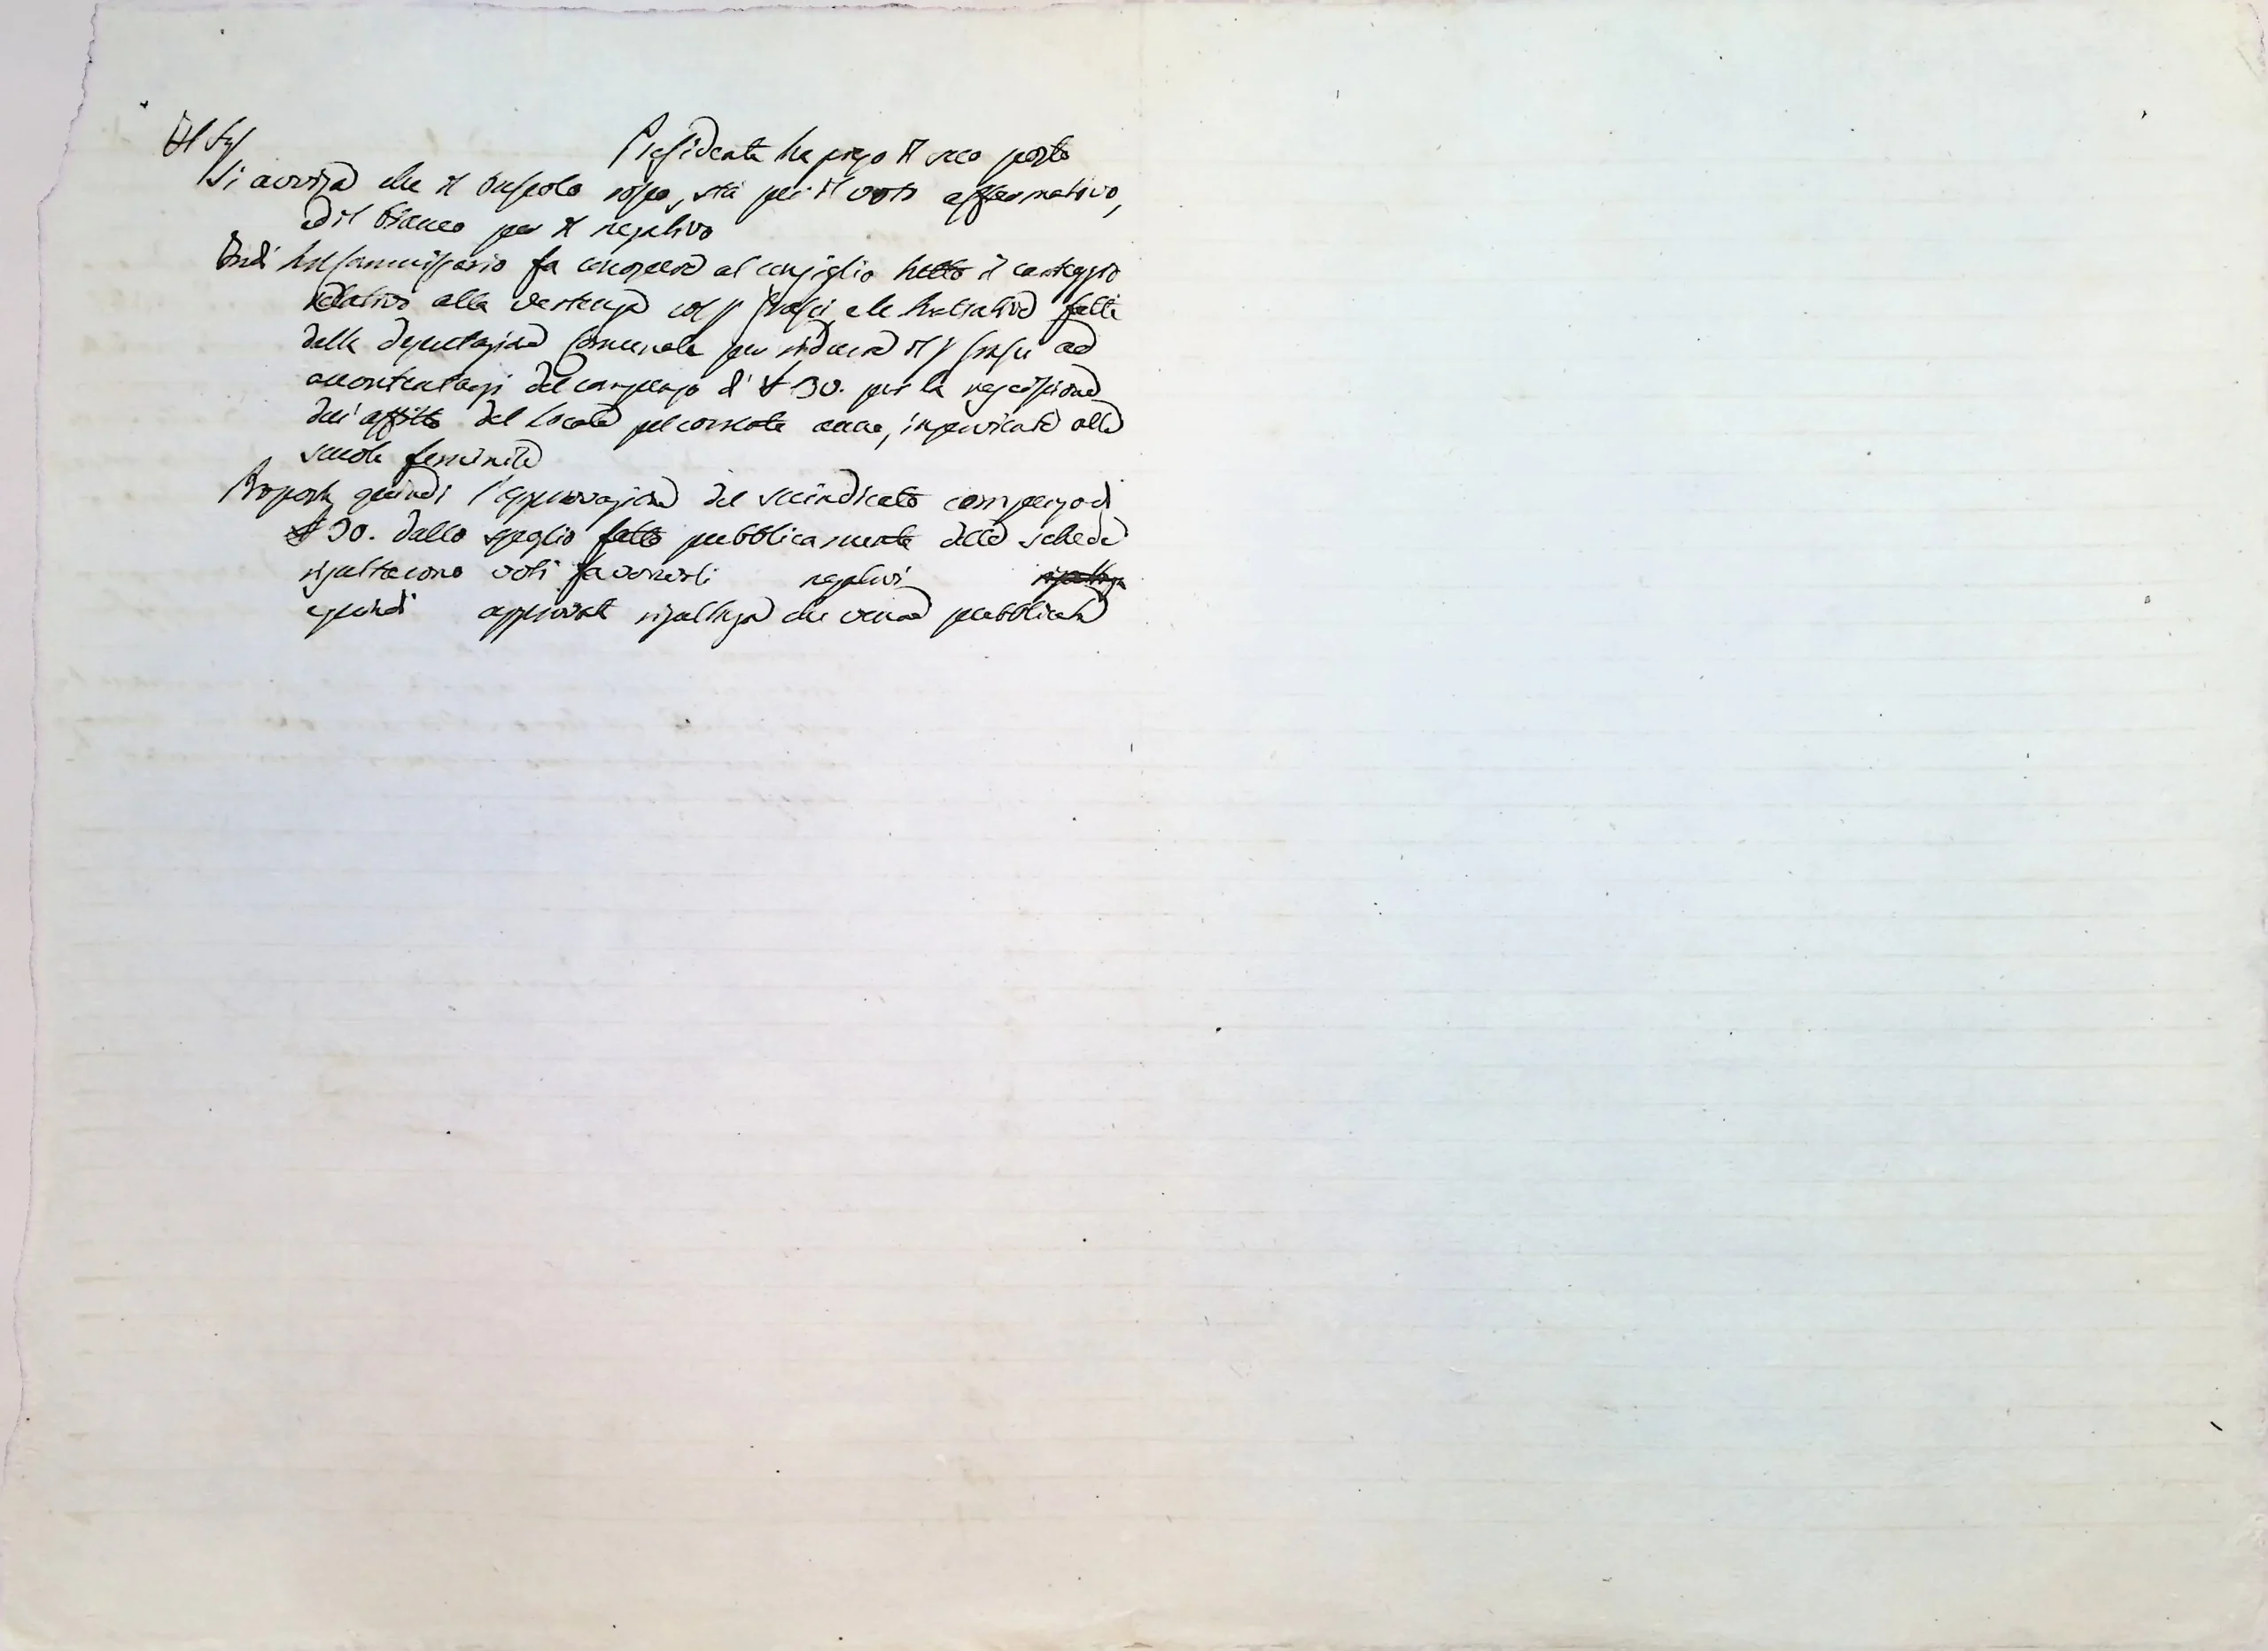 Il Sig.r Presidente ha preso il seco posto
Si avvisa che il bussolo rosso, sta per il voto affermativo,
ed il bianco per il negativo
Indi Commissario fa conoscere al consiglio tutto il carteggio
relativo alla vertenza col e le trattative fatte
dalla deputazione Comunale per ridurre il ad
accontentarsi del compenso di £ 30. per la rescissione
dell'affitto del locale pel corrente anno, inservibile alla
scuola feminile
Proposta quindi l'approvazione del succindicato compenso di
£ 30. dallo spoglio fatto pubblicamente delle schede
risultarono voti favorevoli negativi
e quindi approvata risultanza che venne pubblicata